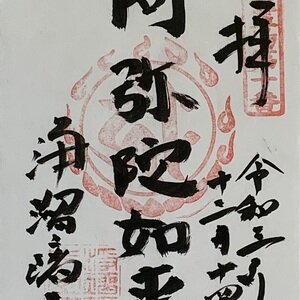 拝
令和三年
十二月十四
阿弥陀如来
浄瑠璃